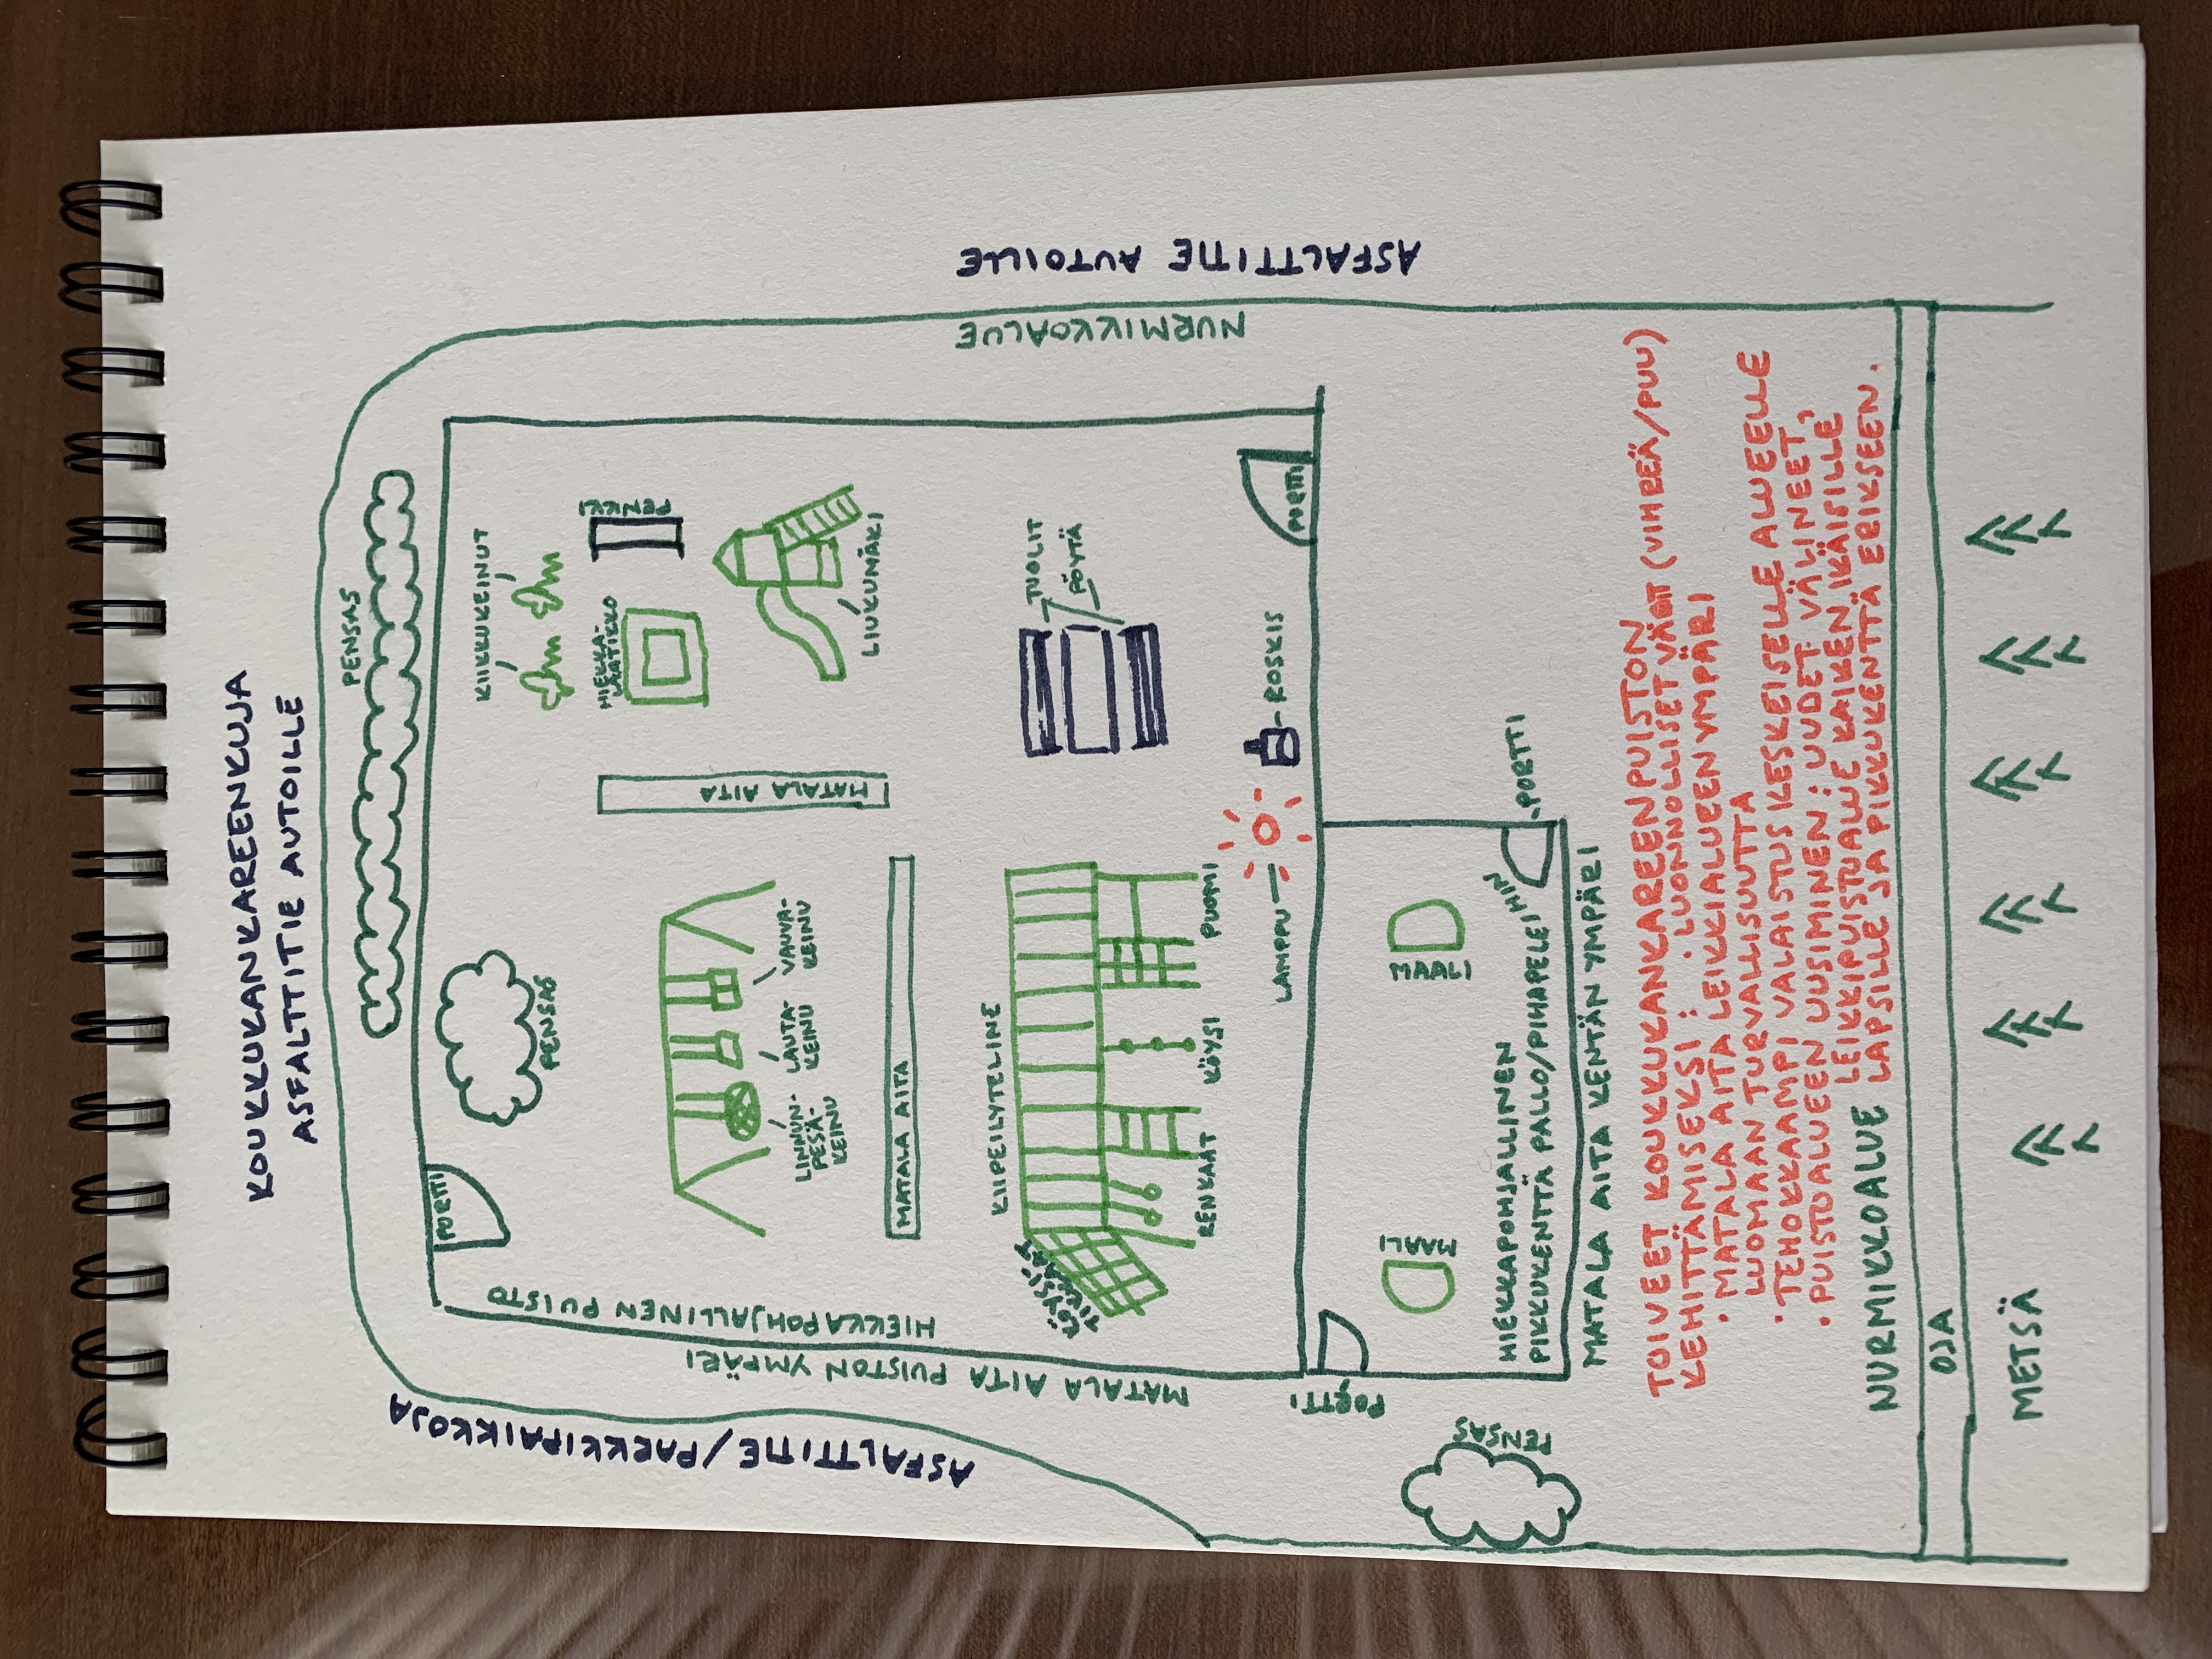 KOUKKUKANKAREENKUJA
ASFALTTITIE AUTOILLE
PENSAS
ASFALTTITIE/PARKKIPAIKKOJA
ASFALTTITIE AUTOILLE
NURMIKKOALUE
PORTTI
PENSAS
KIIKKUKEINUT
PENKKI
HIEKKA-
LAATIKKO
LIUKUMÄKI
MATALA AITA
LINNUN-
PESÄ-
KEINU
LAUTA-
KEINU
VAUVA-
KEINU
MATALA AITA
HIEKKAPOHJALLINEN PUISTO
MATALA AITA PUISTON YMPÄRI
KIIPEILYTELINE
KÖYSI-
RENKAAT
KÖYSI
PUOMI
TUOLIT
PÖYTÄ
LAMPPU
ROSKIS
PORTTI
PORTTI
MAALI
MAALI
PORTTI
HIEKKAPOHJALLINEN
PIKKUKENTTÄ PALLO/PIHAPELEIHIN
MATALA AITA KENTÄN YMPÄRI
PENSAS
TOIVEET KOUKKUKANKAREENPUISTON
KEHITTÄMISEKSI: · LUONNOLLISET VÄRIT (VIHREÄ/PUU)
· MATALA AITA LEIKKIALUEEN YMPÄRI
LUOMAAN TURVALLISUUTTA
· TEHOKKAAMPI VALAISTUS KESKEISELLE ALUEELLE
· PUISTOALUEEN UUSIMINEN; UUDET VÄLINEET,
LEIKKIPUISTOALUE KAIKEN IKÄISILLE
LAPSILLE JA PIKKUKENTTÄ ERIKSEEN.
NURMIKKOALUE
OJA
METSÄ